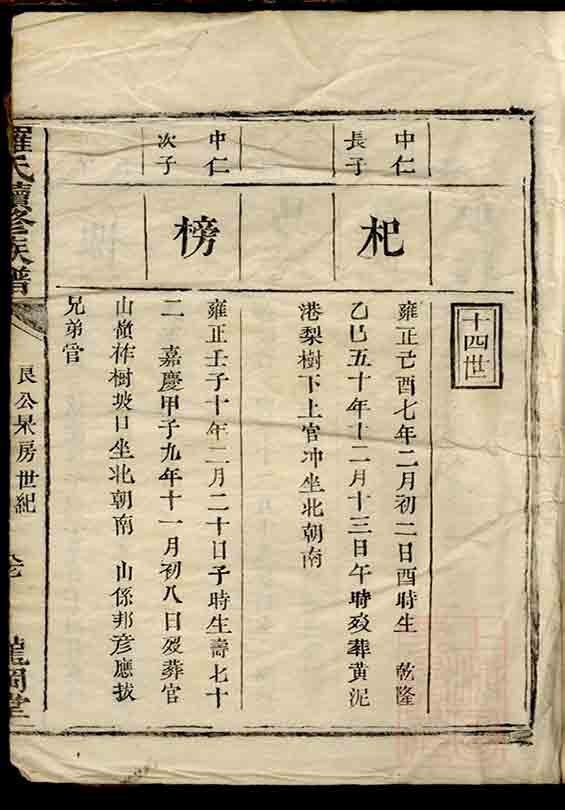 十四世
中仁
長子
杞
雍正己酉七年二月初二日酉時生 乾隆
乙巳五十年十二月十三日午時歿葬黃泥
港梨樹下上官冲坐北朝南
中仁
次子
榜
雍正壬子十年二月二十日子時生壽七十
二 嘉慶甲子九年十一月初八日歿葬官
山嶺柞樹坡口坐北朝南 山係邦彦應拔
兄弟管
羅氏續修族譜
艮公杲房世紀
龍岡堂